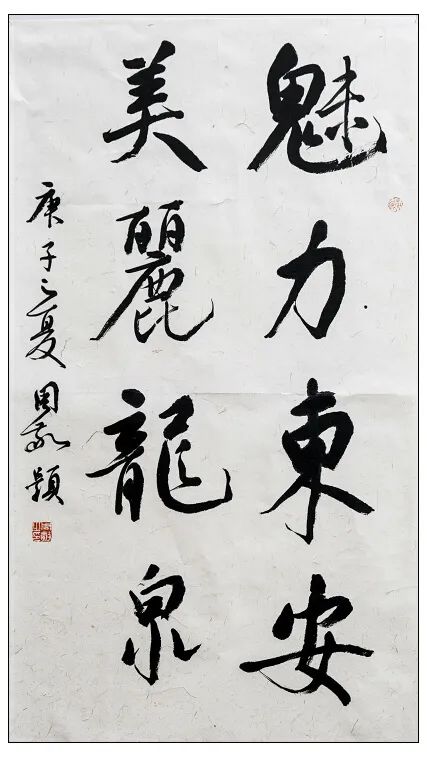 魅力東安
美麗龍泉
庚子之夏 周